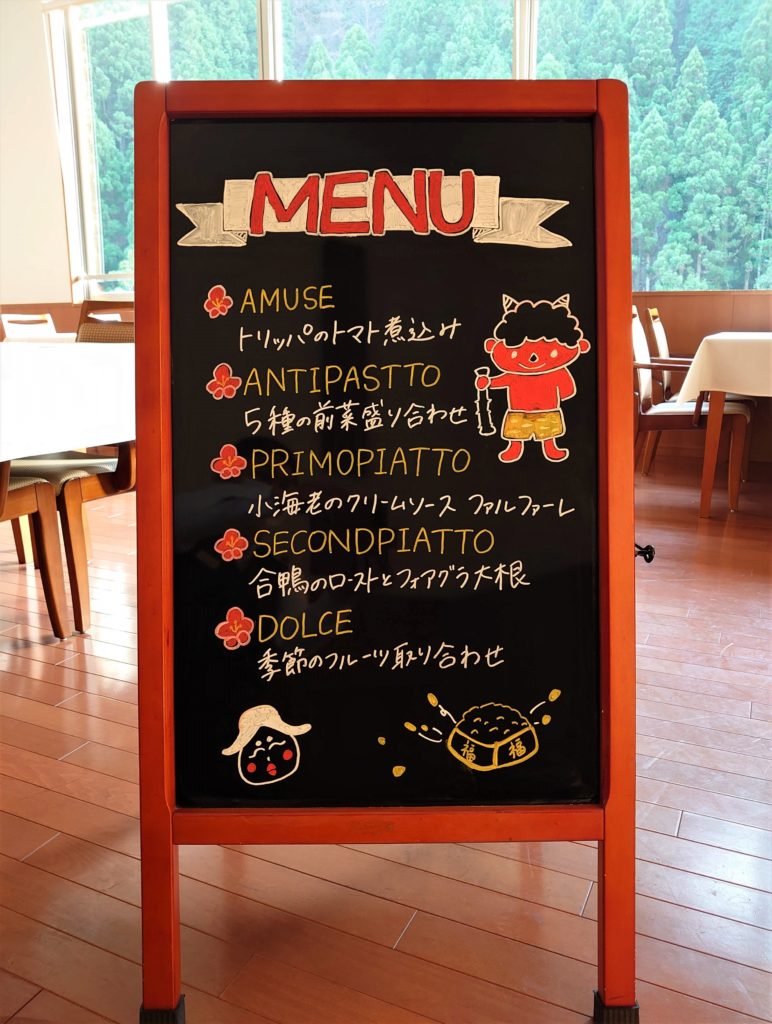 MENU
AMUSE
トリッパのトマト煮込み
ANTIPASTTO
5種の前菜盛り合わせ
PRIMOPIATTO
小海老のクリームソース ファルファーレ
SECONDPIATTO
合鴨のローストとフォアグラ大根
DOLCE
季節のフルーツ取り合わせ
福 福